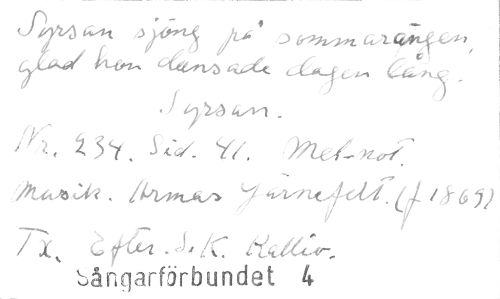 Syrsan sjöng på sommarängen,
glad hon dansade dagen lång.
Syrsan.
Nr. 234. Sid. 41. Mel-not.
Musik. Armas Järnefelt. (f 1869)
Tx. Efter. S. K. Kallio.
Sångarförbundet 4